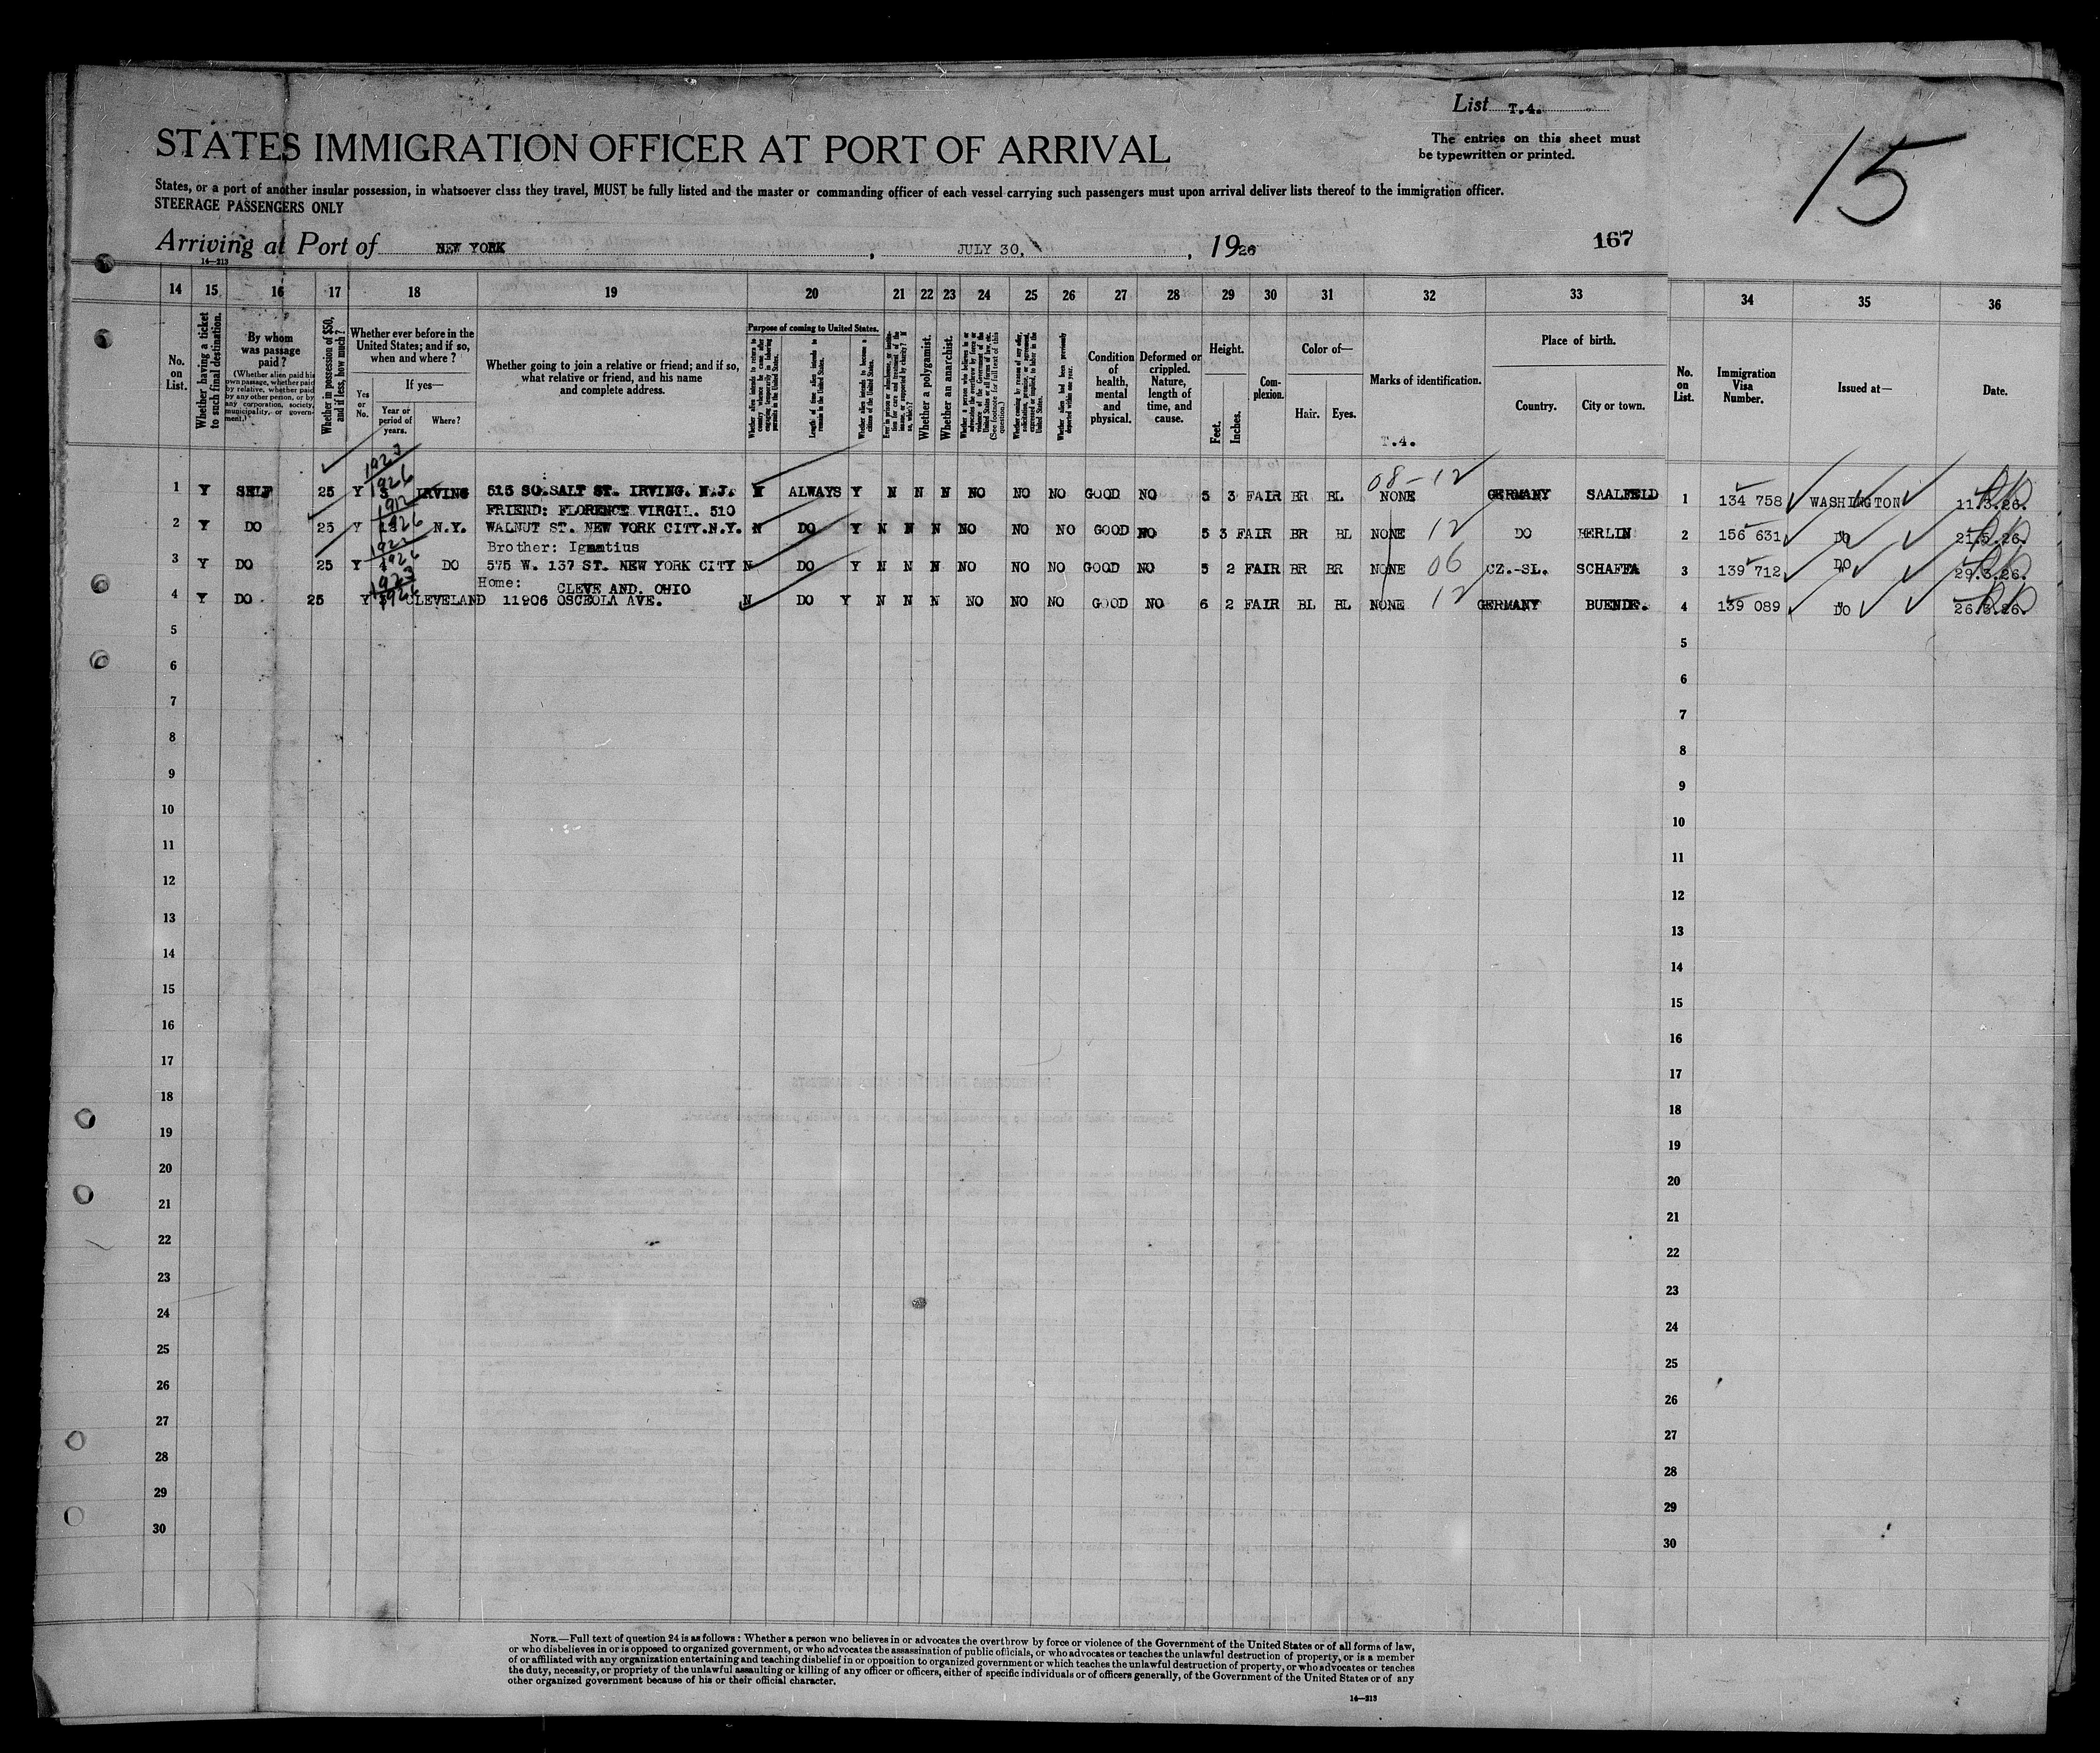 List T.4.
STATES IMMIGRATION OFFICER AT PORT OF ARRIVAL
The entries on this sheet must
be typewritten or printed.
15
States, or a port of another insular possession, in whatsoever class they travel, MUST be fully listed and the master or commanding officer of each vessel carrying such passengers must upon arrival deliver lists thereof to the immigration officer.
STEERAGE PASSENGERS ONLY
Arriving at Port of NEW YORK, JULY 30, 1926
167
16—213
14 15 16 17 18 19 20 21 22 23 24 25 26 27 28 29 30 31 32 33 34 35 36
No. on List.
Whether having a ticket to such final destination.
By whom was passage paid?
(Whether alien paid his own passage, whether paid by relative, whether paid by any other person, or by any corporation, society, municipality, or government.)
Whether in possession of $50, and if less, how much?
Whether ever before in the United States; and if so, when and where?
Yes or No.
If yes—
Year or period of years.
Where?
Whether going to join a relative or friend; and if so, what relative or friend, and his name and complete address.
Purpose of coming to United States.
Whether alien intends to return to country whence he came after engaging temporarily in laboring pursuits in the United States.
Length of time alien intends to remain in the United States.
Whether alien intends to become a citizen of the United States.
Whether a polygamist.
Whether an anarchist.
Whether alien had been previously deported within one year.
Condition of health, mental and physical.
Deformed or crippled. Nature, length of time, and cause.
Height.
Feet.
Inches.
Complexion.
Color of—
Hair.
Eyes.
Marks of identification.
T.4.
Place of birth.
Country.
City or town.
No. on List.
Immigration Visa Number.
Issued at—
Date.
1923
1926
08-12
1 Y SELF 25 Y IRVING 515 SO.SALT ST. IRVING. N.J. N ALWAYS Y N N N NO NO NO GOOD NO 5 3 FAIR BR BL NONE GERMANY SAALFELD 1 134 758 WASHINGTON 11.3.26.
FRIEND: FLORENCE VIRGIL. 510
2 Y DO 25 Y N.Y. WALNUT ST. NEW YORK CITY.N.Y. N DO Y N N N NO NO NO GOOD NO 5 3 FAIR BR BL NONE 12 DO 2 156 631 DO 21.5.26.
Brother: Ignatius
3 Y DO 25 Y 1926 DO 575 W. 137 ST. NEW YORK CITY N DO Y N N N NO NO NO GOOD NO 5 2 FAIR BR BR NONE 06 CZ.-SL. SCHAFFA 3 139 712 DO 29.3.26.
1923
Home: CLEVE AND. OHIO
4 Y DO 25 Y 1926 CLEVELAND 11906 OSCEOLA AVE. N DO Y N N N NO NO NO GOOD NO 6 2 FAIR BL BL NONE 12 GERMANY BUENDE. 4 139 089 DO 26.3.26.
5 5
6 6
7 7
8 8
9 9
10 10
11 11
12 12
13 13
14 14
15 15
16 16
17 17
18 18
19 19
20 20
21 21
22 22
23 23
24 24
25 25
26 26
27 27
28 28
29 29
30 30
NOTE.—Full text of question 24 is as follows: Whether a person who believes in or advocates the overthrow by force or violence of the Government of the United States or of all forms of law,
or who disbelieves in or is opposed to organized government, or who advocates the assassination of public officials, or who advocates or teaches the unlawful destruction of property, or is a member
of or affiliated with any organization entertaining and teaching disbelief in or opposition to organized government or which teaches the unlawful destruction of property, or who advocates or teaches
the duty, necessity, or propriety of the unlawful assaulting or killing of any officer or officers, either of specific individuals or of officers generally, of the Government of the United States or of any
other organized government because of his or their official character.
16—213